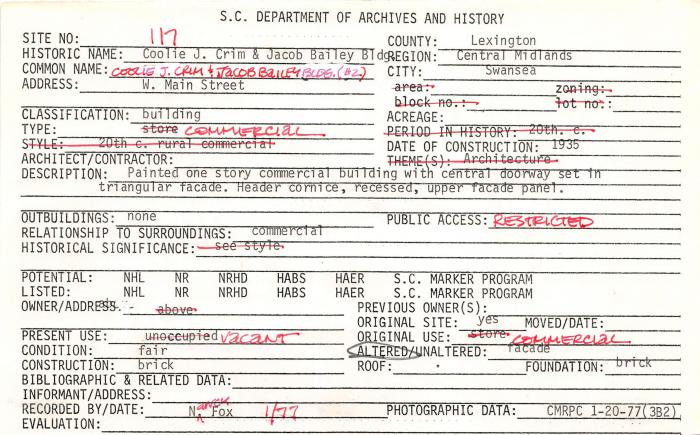 S.C. DEPARTMENT OF ARCHIVES AND HISTORY
SITE NO: 117 COUNTY: Lexington
HISTORIC NAME: Coolie J. Crim & Jacob Bailey Bldg REGION: Central Midlands
COMMON NAME: COOLIE J. CRIM & JACOB BAILEY BLDG. (#2) CITY: Swansea
ADDRESS: W. Main Street area: zoning:
block no.: lot no.:
CLASSIFICATION: building ACREAGE:
TYPE: store COMMERCIAL PERIOD IN HISTORY: 20th. c.
STYLE: 20th c. rural commercial DATE OF CONSTRUCTION: 1935
ARCHITECT/CONTRACTOR: THEME(S): Architecture
DESCRIPTION: Painted one story commercial building with central doorway set in
triangular facade. Header cornice, recessed, upper facade panel.
OUTBUILDINGS: none PUBLIC ACCESS: RESTRICTED
RELATIONSHIP TO SURROUNDINGS: commercial
HISTORICAL SIGNIFICANCE: see style
POTENTIAL: NHL NR NRHD HABS HAER S.C. MARKER PROGRAM
LISTED: NHL NR NRHD HABS HAER S.C. MARKER PROGRAM
OWNER/ADDRESS: above PREVIOUS OWNER(S):
ORIGINAL SITE: yes MOVED/DATE:
PRESENT USE: unoccupied VACANT ORIGINAL USE: store COMMERCIAL
CONDITION: fair ALTERED/UNALTERED: facade
CONSTRUCTION: brick ROOF: FOUNDATION: brick
BIBLIOGRAPHIC & RELATED DATA:
INFORMANT/ADDRESS:
RECORDED BY/DATE: Nancy Fox 1/77 PHOTOGRAPHIC DATA: CMRPC 1-20-77(3B2)
EVALUATION: